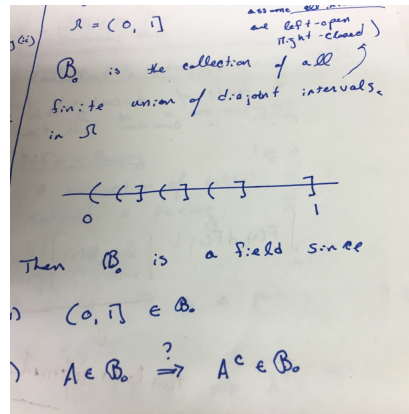 assume all
Ω = (0, 1] are left-open
(ii) right-closed)
B₀ is the collection of all
finite union of disjoint intervals.
in Ω
0 1
Then B₀ is a field since
) (0, 1] ∈ B₀
) A ∈ B₀ ?⟹ Aᶜ ∈ B₀